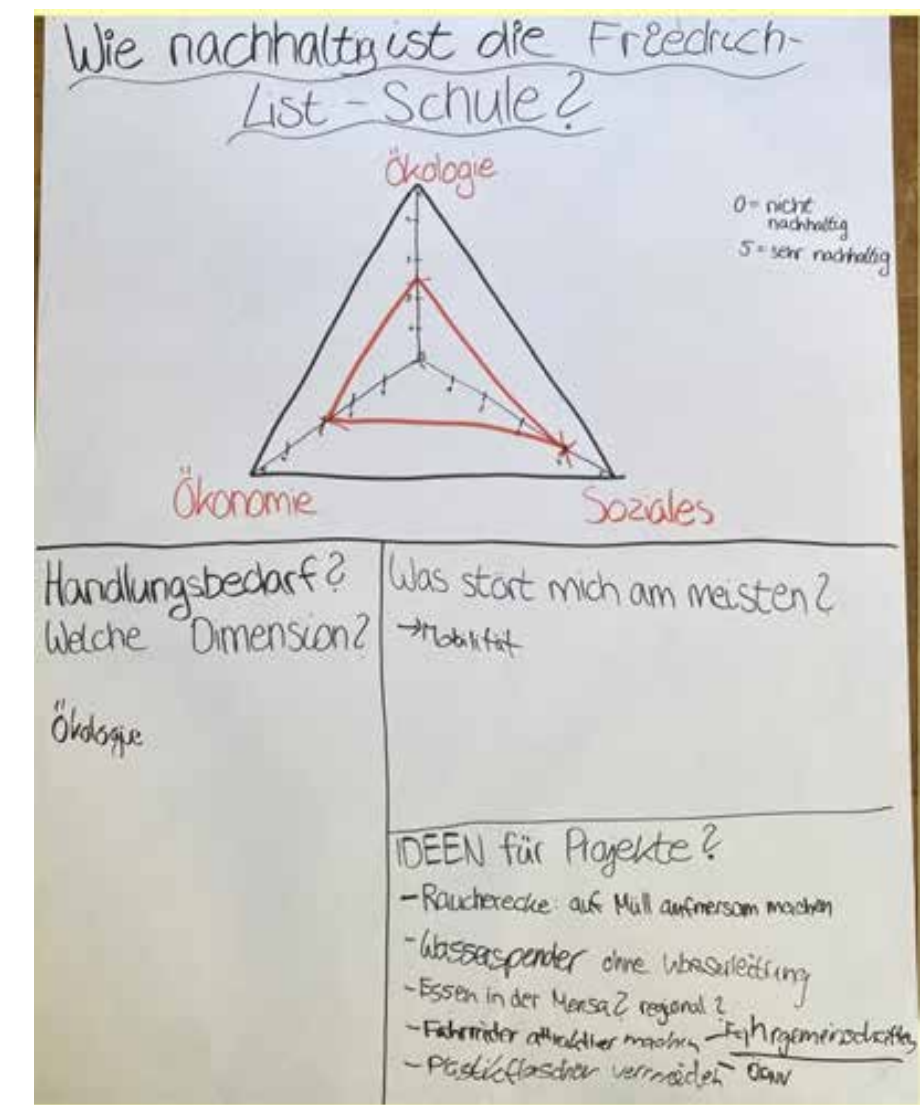 Wie nachhaltig ist die Friedrich-
List-Schule?
Ökologie
0 = nicht
nachhaltig
5 = sehr nachhaltig
Ökonomie
Soziales
Handlungsbedarf?
Welche Dimension?
Ökologie
Was stört mich am meisten?
→ Mobilität
IDEEN für Projekte?
- Raucherecke: auf Müll aufmersam machen
- Wasserspender ohne Wasserleitung
- Essen in der Mensa? regional?
- Fahrräder attraktiver machen - Fahrgemeinschaften
- Plastikflaschen vermeiden - ÖPNV